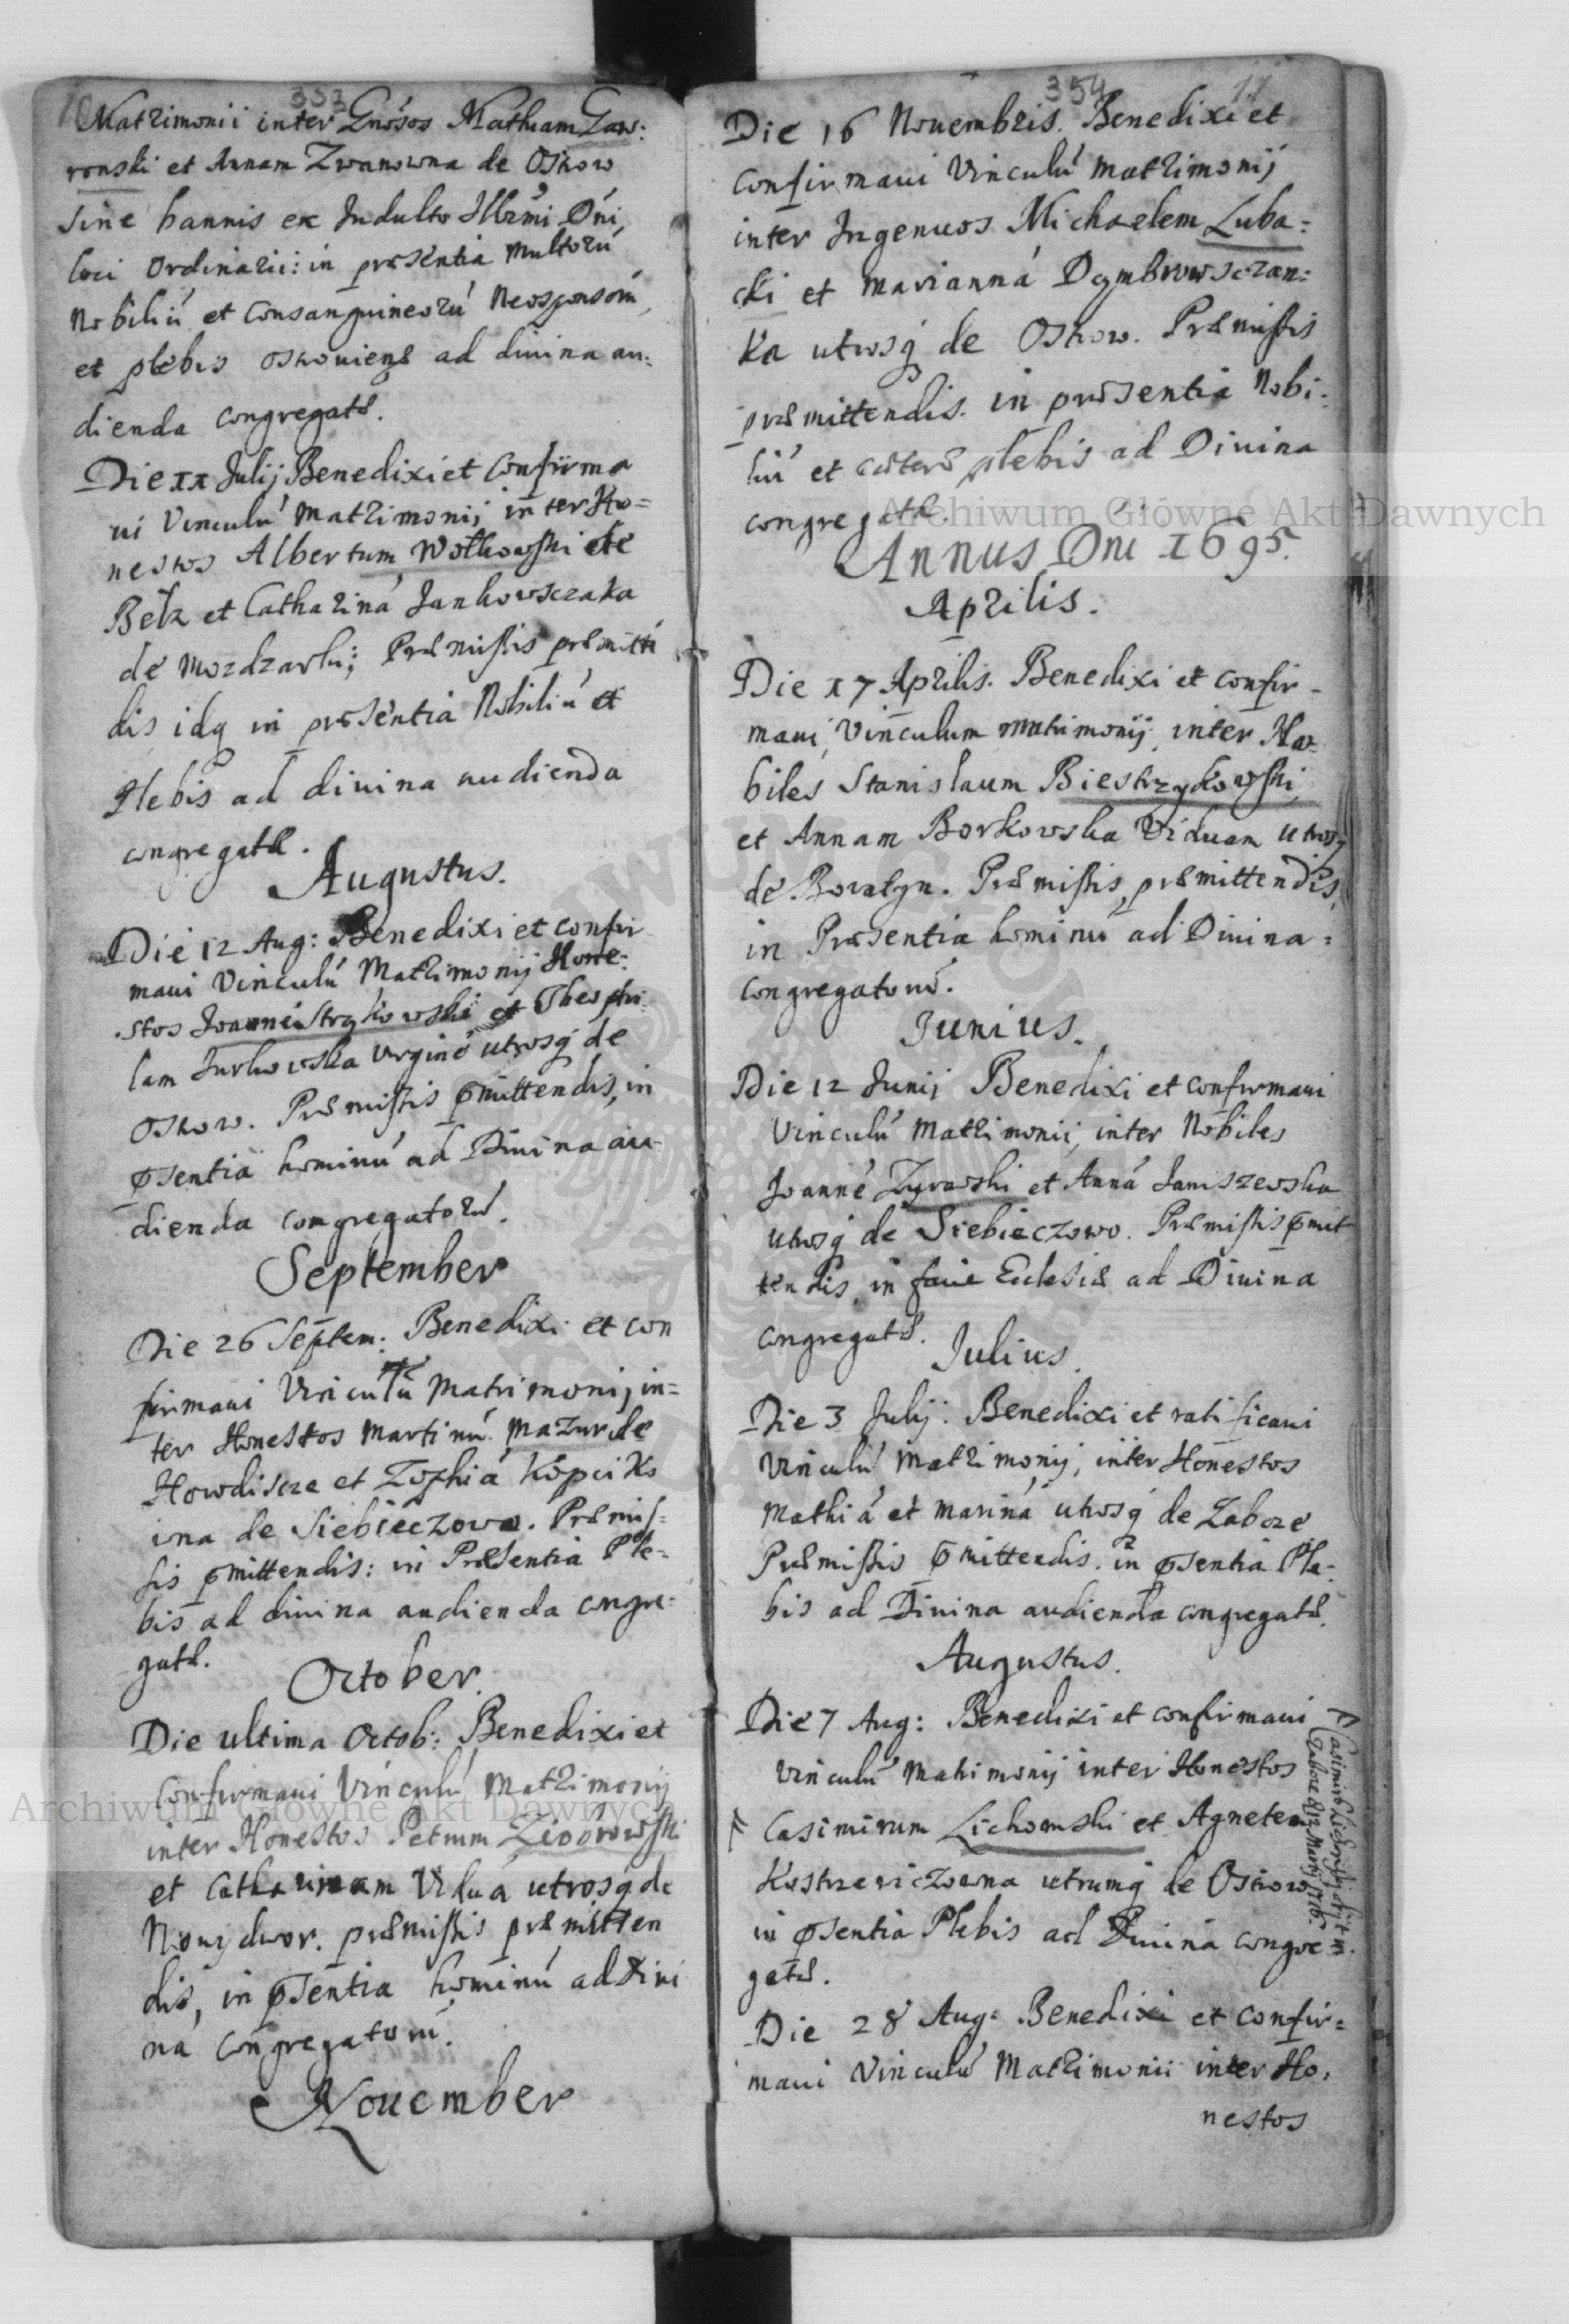 353
Matrimonii inter Gnósos Mathiam Gaw:
ronski et Annam Zwanowna de Oskow
sine bannis ex Indulto Illrmi Dńi
loci Ordinarii: in præsentia multorú
Nobiliú et Consanguineorú Neosponsorú,
et plebis oskoviens ad divina au:
dienda congregatæ.
Die xx Julij Benedixi et Confirma
ui Vinculú Matrimonij inter Ho=
nestos Albertum Wołkowski de
Bełz et Cathariná Jankowsczaka
de Mozdzarki; Præmissis præmittē
dis idq in præsentia Nobiliú et
Plebis ad diuina audienda
congregatæ.
Augustus.
Die 12 Aug: Benedixi et confir
maui Vinculú Matrimonij Hone:
stos Joanné Strykowski et Theophi
lam Jurkowska virginé utrosq de
Oskow. Præmissis pmittendis, in
psentia hominú ad Diuina au
dienda congregatorú.
September
Die 26 Septem: Benedixi et con
firmaui Vinculú Matrimonij in=
ter Honestos Martinú Mazur de
Howdiscze et Zophiá Kopciko
wna de Siebieczowo. Præmis=
sis pmittendis: in Præsentia Ple=
bis ad diuina audienda congre=
gatæ.
October.
Die ultima Octob: Benedixi et
Confirmaui Vinculú Matrimonij
inter Honestos Petrum Ziobrowski
et Catharinam Viduá utrosq de
Nouydwor. præmissis præmitten
dis, in psentia hominú ad Diui
na congregatorú.
Nouember
354
Die 16 Nouembris. Benedixi et
Confirmaui Vinculú Matrimonij
inter Ingenuos Michaelem Luba=
cki et Marianná Dąmbrowsczan:
ka utrosq de Oskow. Præmissis
præmittendis. in præsentia Nobi:
liú et cæteræ plebis ad Diuina
congregatæ.
Annus Dni 1695.
Aprilis.
Die 17 Aprilis. Benedixi et confir-
maui, Vinculum matrimonij, inter No
biles Stanislaum Biestrzykowski,
et Annam Borkowska Viduam utrosq
de Boratyn. Præmissis, præmittendis,
in Præsentia hominú ad Diuina:
congregatorú.
Junius.
Die 12 Junij Benedixi et confirmaui
Vinculú Matrimonii, inter Nobiles
Joanné Zyrawski et Anná Janiszewska
utrosq de Siebieczowo. Præmissis pmit
tendis, in facie Ecclesiæ ad Diuina
congregatæ.
Julius.
Die 3 Julij: Benedixi et ratificaui
Vinculú Matrimonij, inter Honestos
Mathiá et Mariná utrosq de Zaboze
Præmissis pmittendis. in psentia Ple-
bis ad Diuina audienda congregatæ.
Augustus.
Die 7 Aug: Benedixi et confirmaui
Vinculú Matrimonij inter Honestos
Casimirum Lichomski et Agnetem
Kostrzewiczowna utrumq de Oskow
in psentia Plebis ad Diuina congre=
gatæ.
Die 28 Aug: Benedixi et confir=
maui Vinculú Matrimonii inter Ho,
nestos
Archiwum Główne Akt Dawnych
Archiwum Główne Akt Dawnych